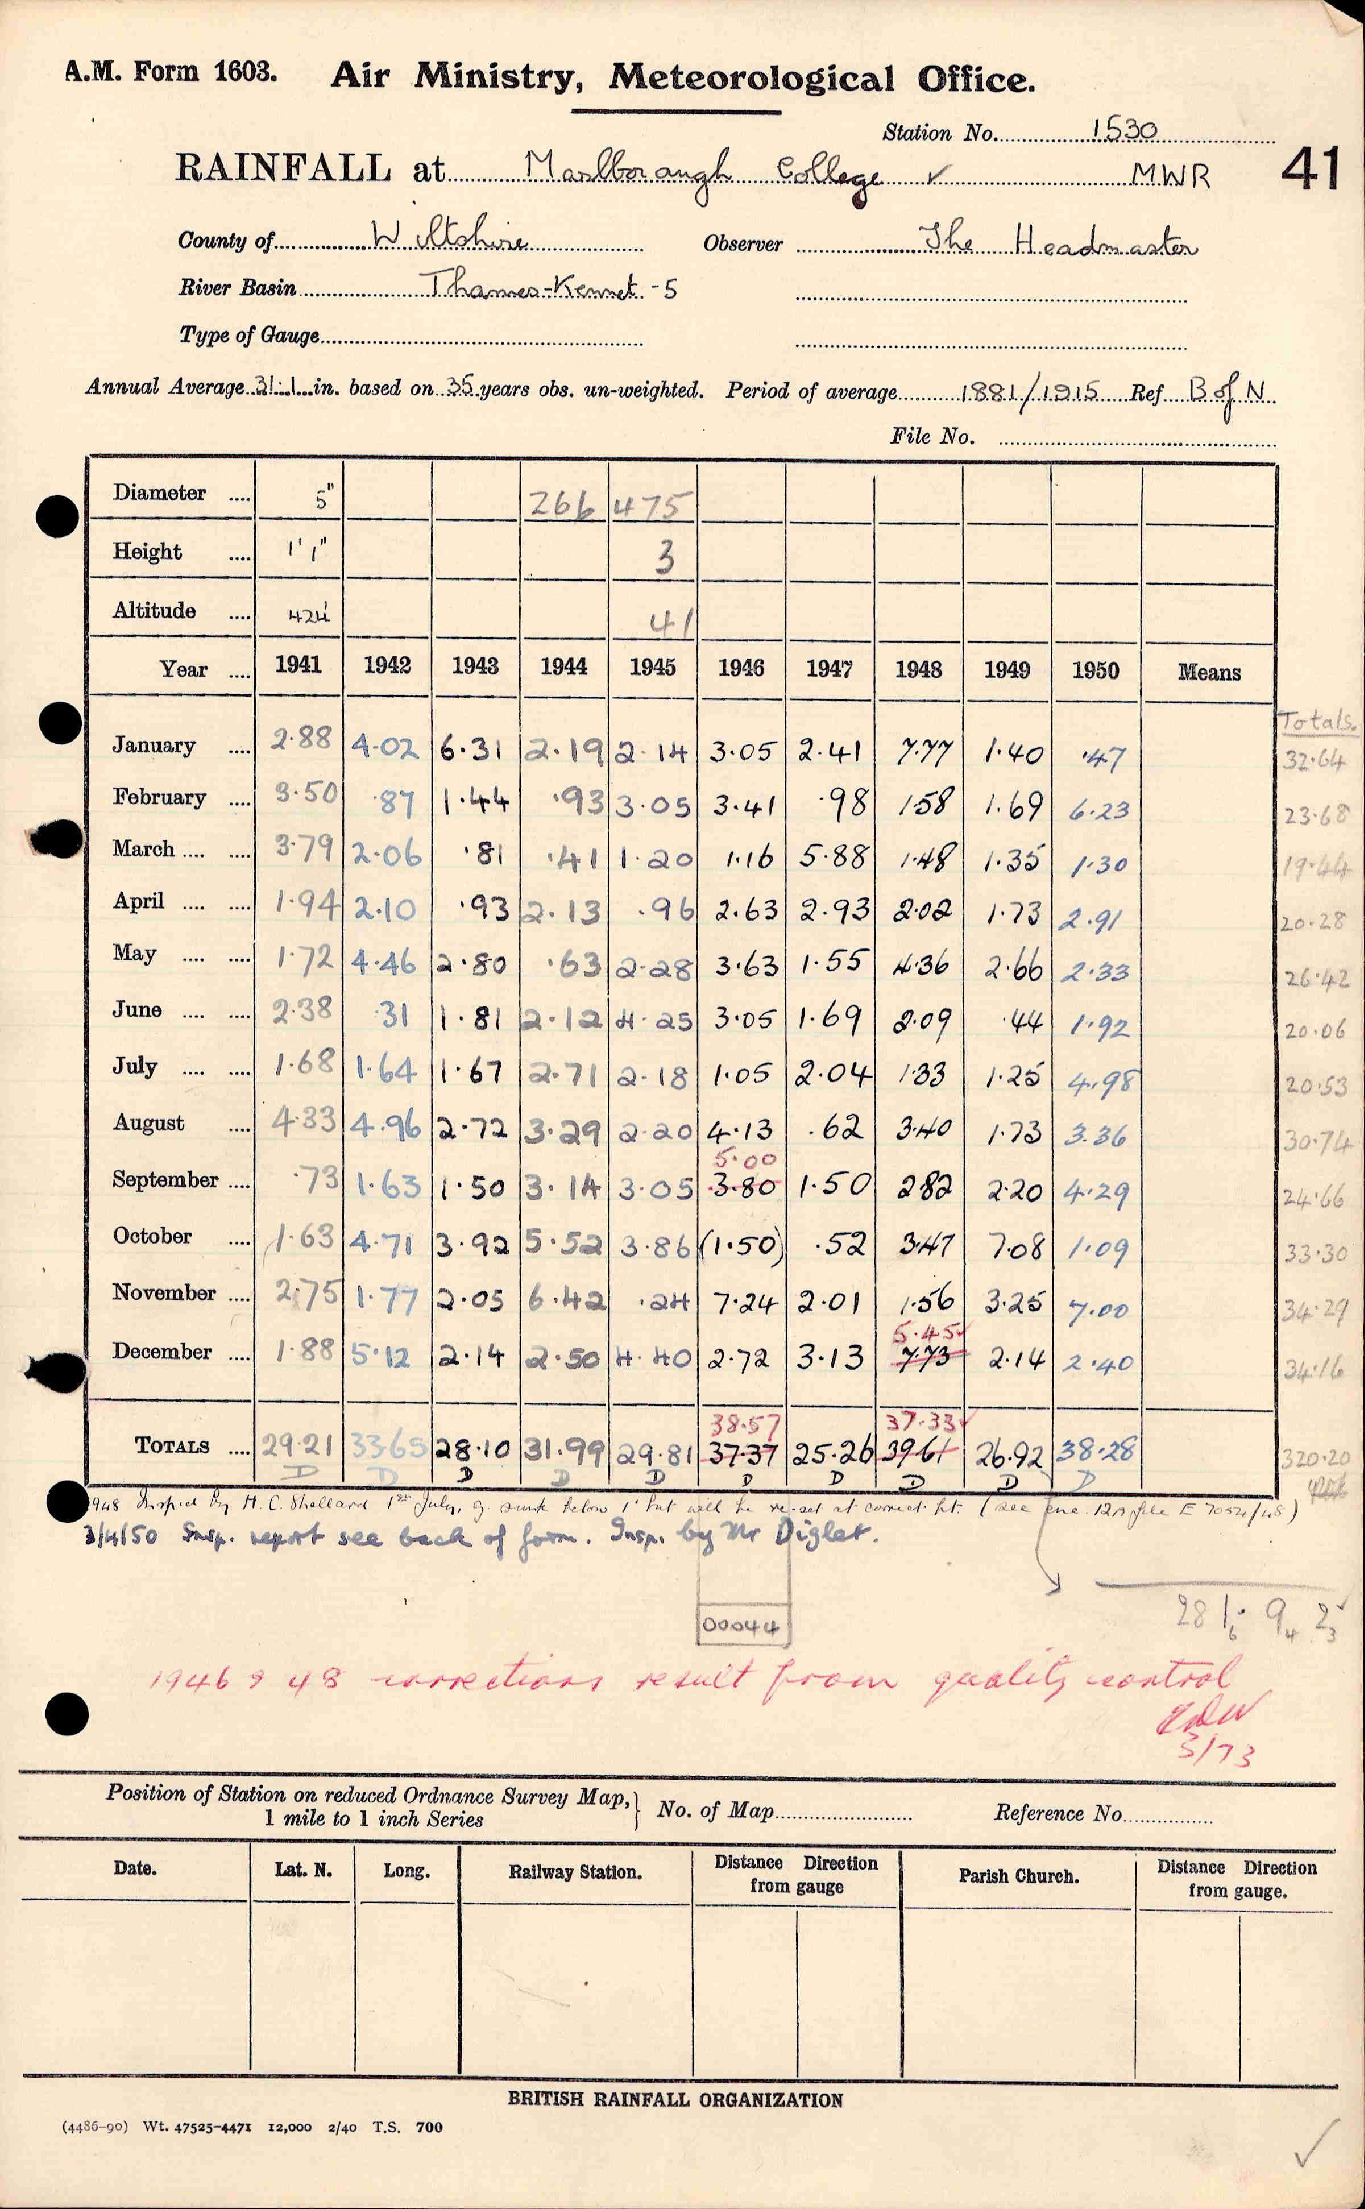 A.M. Form 1603. Air Ministry, Meteorological Office.
Station No. 1530
RAINFALL at Marlborough College ✓ MWR 41
County of Wiltshire Observer The Headmaster
River Basin Thames-Kennet-5
Type of Gauge
Annual Average 31.1 in. based on 35 years obs. un-weighted. Period of average 1881/1915 Ref B of N
File No.
Diameter .... 5" 266 475
Height .... 1' 1" 3
Altitude .... 424' 41
Year .... 1941 1942 1943 1944 1945 1946 1947 1948 1949 1950 Means
Totals.
January .... 2.88 4.02 6.31 2.19 2.14 3.05 2.41 7.77 1.40 .47 32.64
February .... 3.50 .87 1.44 .93 3.05 3.41 .98 1.58 1.69 6.23 23.68
March .... .... 3.79 2.06 .81 .41 1.20 1.16 5.88 1.48 1.35 1.30 19.44
April .... .... 1.94 2.10 .93 2.13 .96 2.63 2.93 2.02 1.73 2.91 20.28
May .... .... 1.72 4.46 2.80 .63 2.28 3.63 1.55 4.36 2.66 2.33 26.42
June .... .... 2.38 .31 1.81 2.12 4.25 3.05 1.69 2.09 .44 1.92 20.06
July .... .... 1.68 1.64 1.67 2.71 2.18 1.05 2.04 1.33 1.25 4.98 20.53
August .... 4.33 4.96 2.72 3.29 2.20 4.13 .62 3.40 1.73 3.36 30.74
5.00
September .... .73 1.63 1.50 3.14 3.05 3.80 1.50 2.82 2.20 4.29 24.66
October .... 1.63 4.71 3.92 5.52 3.86 (1.50) .52 3.47 7.08 1.09 33.30
November .... 2.75 1.77 2.05 6.42 .24 7.24 2.01 1.56 3.25 7.00 34.29
5.45✓
December .... 1.88 5.12 2.14 2.50 4.40 2.72 3.13 7.73 2.14 2.40 34.16
38.57 37.33✓
TOTALS .... 29.21 33.65 28.10 31.99 29.81 37.37 25.26 39.61 26.92 38.28 320.20
D D D D D D D D D D
1948 Insp'd by H. C. Shellard 1st July, g. sunk below 1' but will be re-set at correct ht. (see enc. 12A file E 7054/48)
3/4/50 Insp. report see back of form. Insp. by Mr Diglet.
00044
28 1 6 9 4 2 3
1946 & 48 corrections result from quality control
3/73
Position of Station on reduced Ordnance Survey Map, } No. of Map Reference No.
1 mile to 1 inch Series
Date. Lat. N. Long. Railway Station. Distance Direction from gauge Parish Church. Distance Direction from gauge.
BRITISH RAINFALL ORGANIZATION
(4486-90) Wt. 47525-4471 12,000 2/40 T.S. 700
✓